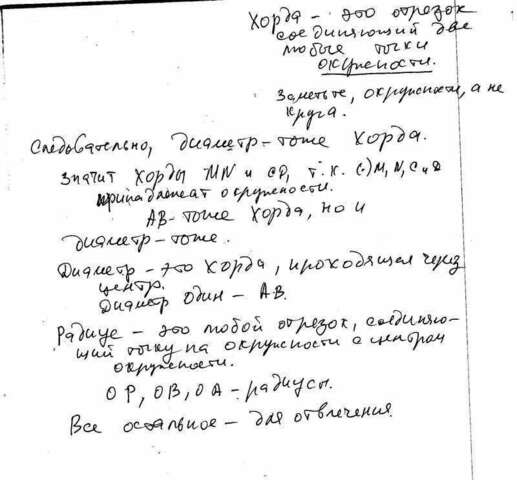 Хорда – это отрезок
соединяющий две
любые точки
окружности.
Заметьте, окружности, а не
круга.
Следовательно, диаметр – тоже хорда.
Значит хорды MN и CD, т.к. (·) M, N, C и D
принадлежат окружности.
AB – тоже хорда, но и
диаметр – тоже.
Диаметр – это хорда, проходящая через
центр.
Диаметр один – AB.
Радиус – это любой отрезок, соединяю-
щий точку на окружности с центром
окружности.
OP, OB, OA – радиусы.
Все остальное – для отвлечения.